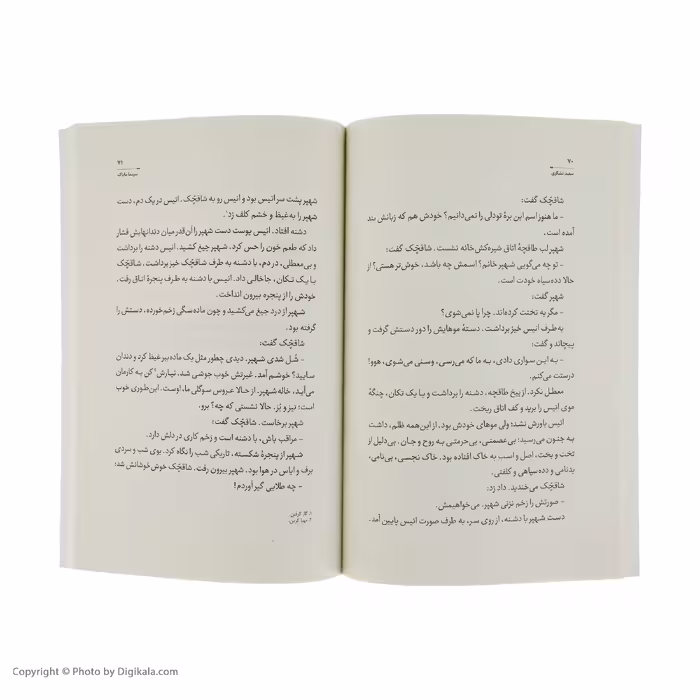 ۷۰
سعید تشکری
شاقچّک گفت:
– ما هنوز اسم این برهٔ تودلی را نمی‌دانیم؟ خودش هم که زبانش بند
آمده است.
شهپر لب طاقچهٔ اتاق شیره‌کش‌خانه نشست. شاقچّک گفت:
– تو چه می‌گویی شهپر خانم؟ اسمش چه باشد، خوش‌تر هستی؟ از
حالا دده‌سیاه خودت است.
شهپر گفت:
– مگر به تختت کرده‌اند. چرا پا نمی‌شوی؟
به‌طرف انیس خیز برداشت. دستهٔ موهایش را دور دستش گرفت و
پیچاند و گفت:
– به این سواری دادی، به ما که می‌رسی، وسنی می‌شوی، هوو!
درستت می‌کنم.
معطل نکرد. از پیخ طاقچه، دشنه را برداشت و با یک تکان، چنگهٔ
موی انیس را برید و کف اتاق ریخت.
انیس باورش نشد؛ ولی موهای خودش بود. از این‌همه ظلم، داشت
به جنون می‌رسید؛ بی‌عصمتی، بی‌حرمتی به روح و جان. بی‌دلیل از
تخت و بخت، اصل و اسب به خاک افتاده بود. خاک نجسی، بی‌نامی،
بدنامی و دده سیاهی و کلفتی.
شاقچّک می‌خندید. داد زد:
– صورتش را زخم نزنی شهپر. می‌خواهیمش.
دست شهپر با دشنه، از روی سر، به طرف صورت انیس پایین آمد.
۷۱
سینما مایاک
شهپر پشت سر انیس بود و انیس رو به شاقچّک. انیس در یک دم، دست
شهپر را به غیظ و خشم کلف زد¹.
دشنه افتاد. انیس پوست دست شهپر را آن‌قدر میان دندانهایش فشار
داد که طعم خون را حس کرد. شهپر جیغ کشید. انیس دشنه را برداشت
و بی‌معطلی، در دم، با دشنه به طرف شاقچّک خیز برداشت. شاقچّک
با یک تکان، جاخالی داد. انیس با دشنه به طرف پنجرهٔ اتاق رفت.
خودش را از پنجره بیرون انداخت.
شهپر از درد جیغ می‌کشید و چون ماده‌سگی زخم‌خورده، دستش را
گرفته بود.
شاقچّک گفت:
– شُل شدی شهپر. دیدی چطور مثل یک ماده‌ببر غیظ کرد و دندان
سایید؟ خوشم آمد. غیرتش خوب جوشی شد. تیارش² کن به کارمان
می‌آید، خاله شهپر. از حالا عروس سوگلی ما، اوست. این‌طوری خوب
است؛ تیز و بُز. حالا نشستی که چه؟ برو.
شهپر برخاست. شاقچّک گفت:
– مراقب باش، با دشنه است و زخم کاری در دلش دارد.
شهپر از پنجرهٔ شکسته، تاریکی شب را نگاه کرد. بوی شب و سردی
برف و ایاس در هوا بود. شهپر بیرون رفت. شاقچّک خوش خوشانش شد:
– چه طلایی گیر آوردم!
1. گاز گرفتن.
2. مهیا کردن.
Copyright © Photo by Digikala.com